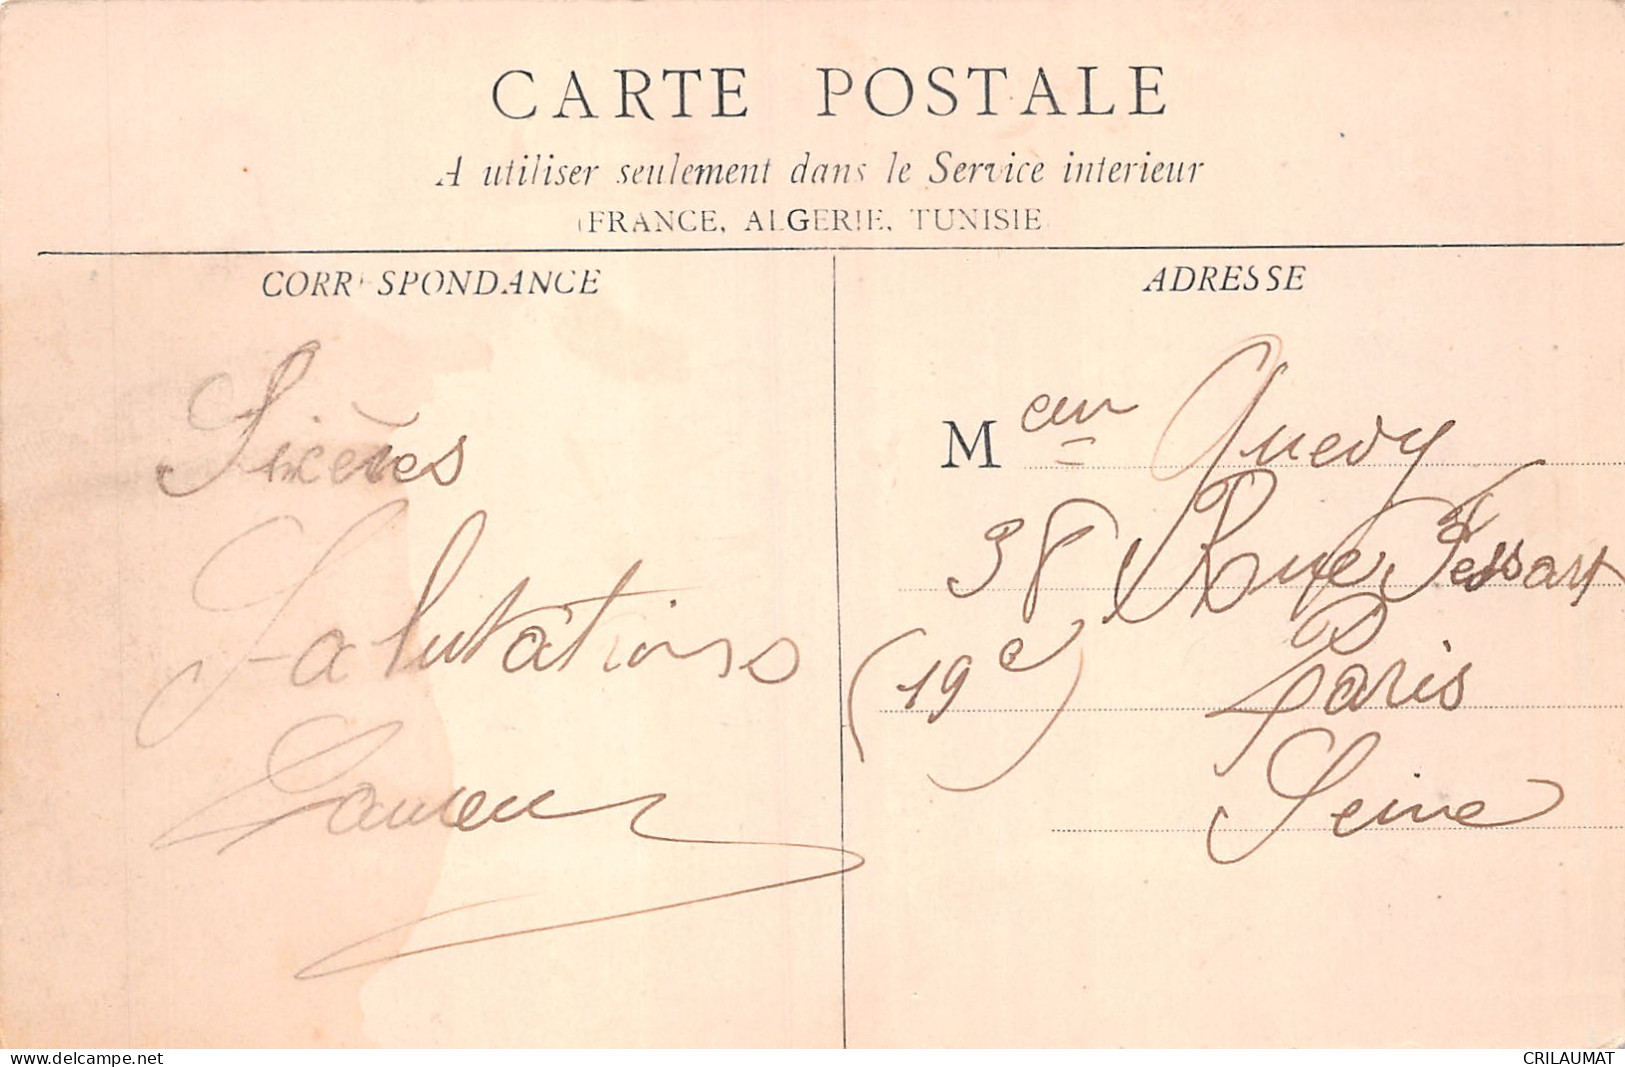 CARTE POSTALE
A utiliser seulement dans le Service interieur
(FRANCE, ALGERIE, TUNISIE
CORRESPONDANCE
Salutations
ADRESSE
M Quevy
38 Rue Fessart
(19e) Paris
Seine
www.delcampe.net
CRILAUMAT